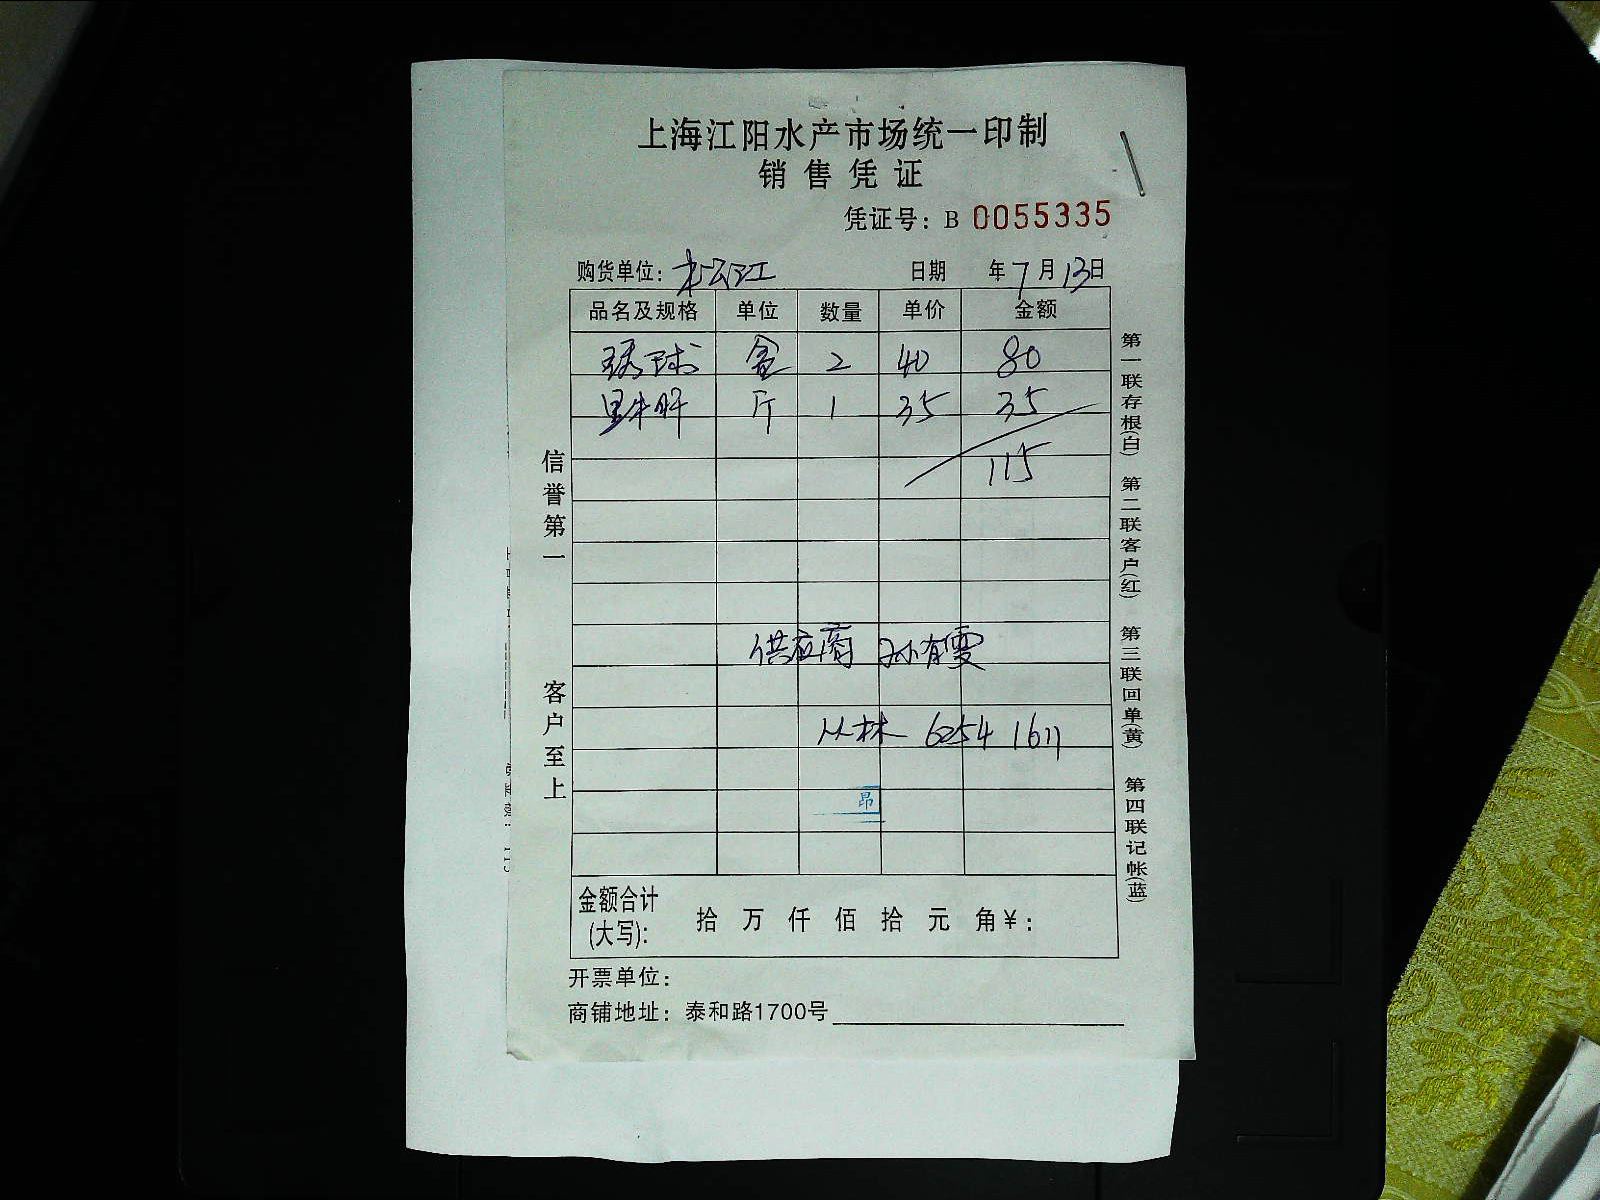 上海江阳水产市场统一印制
销售凭证
凭证号：B 0055335
购货单位：松江 日期 年7月13日
品名及规格 单位 数量 单价 金额
琇球 盒 2 40 80
斤 1 35 35
115
供应商 孙有雯
从林 6254 1611
昂
金额合计(大写)： 拾 万 仟 佰 拾 元 角¥：
开票单位：
商铺地址：泰和路1700号
信誉第一
客户至上
第一联存根(白) 第二联客户(红) 第三联回单(黄) 第四联记帐(蓝)